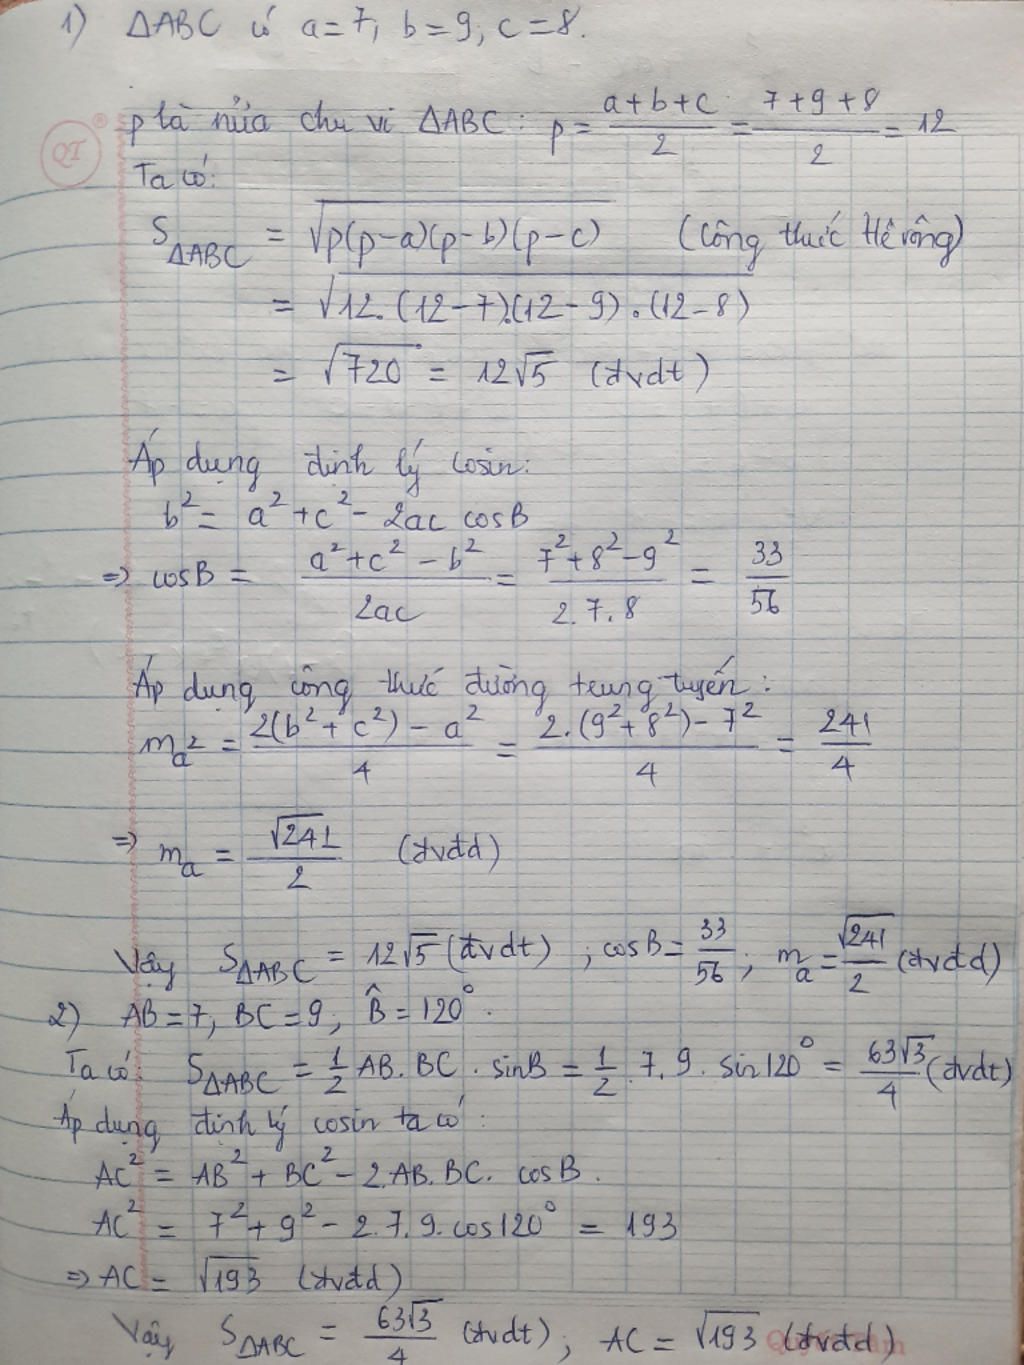 1) ΔABC có a=7, b=9, c=8.
p là nửa chu vi ΔABC: p = (a+b+c)/2 = (7+9+8)/2 = 12
QT ®
Ta có:
S_ΔABC = √(p(p-a)(p-b)(p-c)) (Công thức Hê rông)
= √(12.(12-7).(12-9).(12-8))
= √720 = 12√5 (đvdt)
Áp dụng định lý cosin:
b² = a² + c² - 2ac cosB
=> cosB = (a²+c²-b²)/(2ac) = (7²+8²-9²)/(2.7.8) = 33/56
Áp dụng công thức đường trung tuyến:
m_a² = (2(b²+c²)-a²)/4 = (2.(9²+8²)-7²)/4 = 241/4
=> m_a = √241/2 (đvđd)
Vậy S_ΔABC = 12√5 (đvdt) ; cosB = 33/56 ; m_a = √241/2 (đvđd)
2) AB=7, BC=9, B̂ = 120°.
Ta có S_ΔABC = 1/2 AB.BC.sinB = 1/2.7.9.sin120° = 63√3/4 (đvdt)
Áp dụng định lý cosin ta có:
AC² = AB² + BC² - 2.AB.BC.cosB.
AC² = 7² + 9² - 2.7.9.cos120° = 193
=> AC = √193 (đvđd)
Vậy S_ΔABC = 63√3/4 (đvdt); AC = √193 (đvđd)